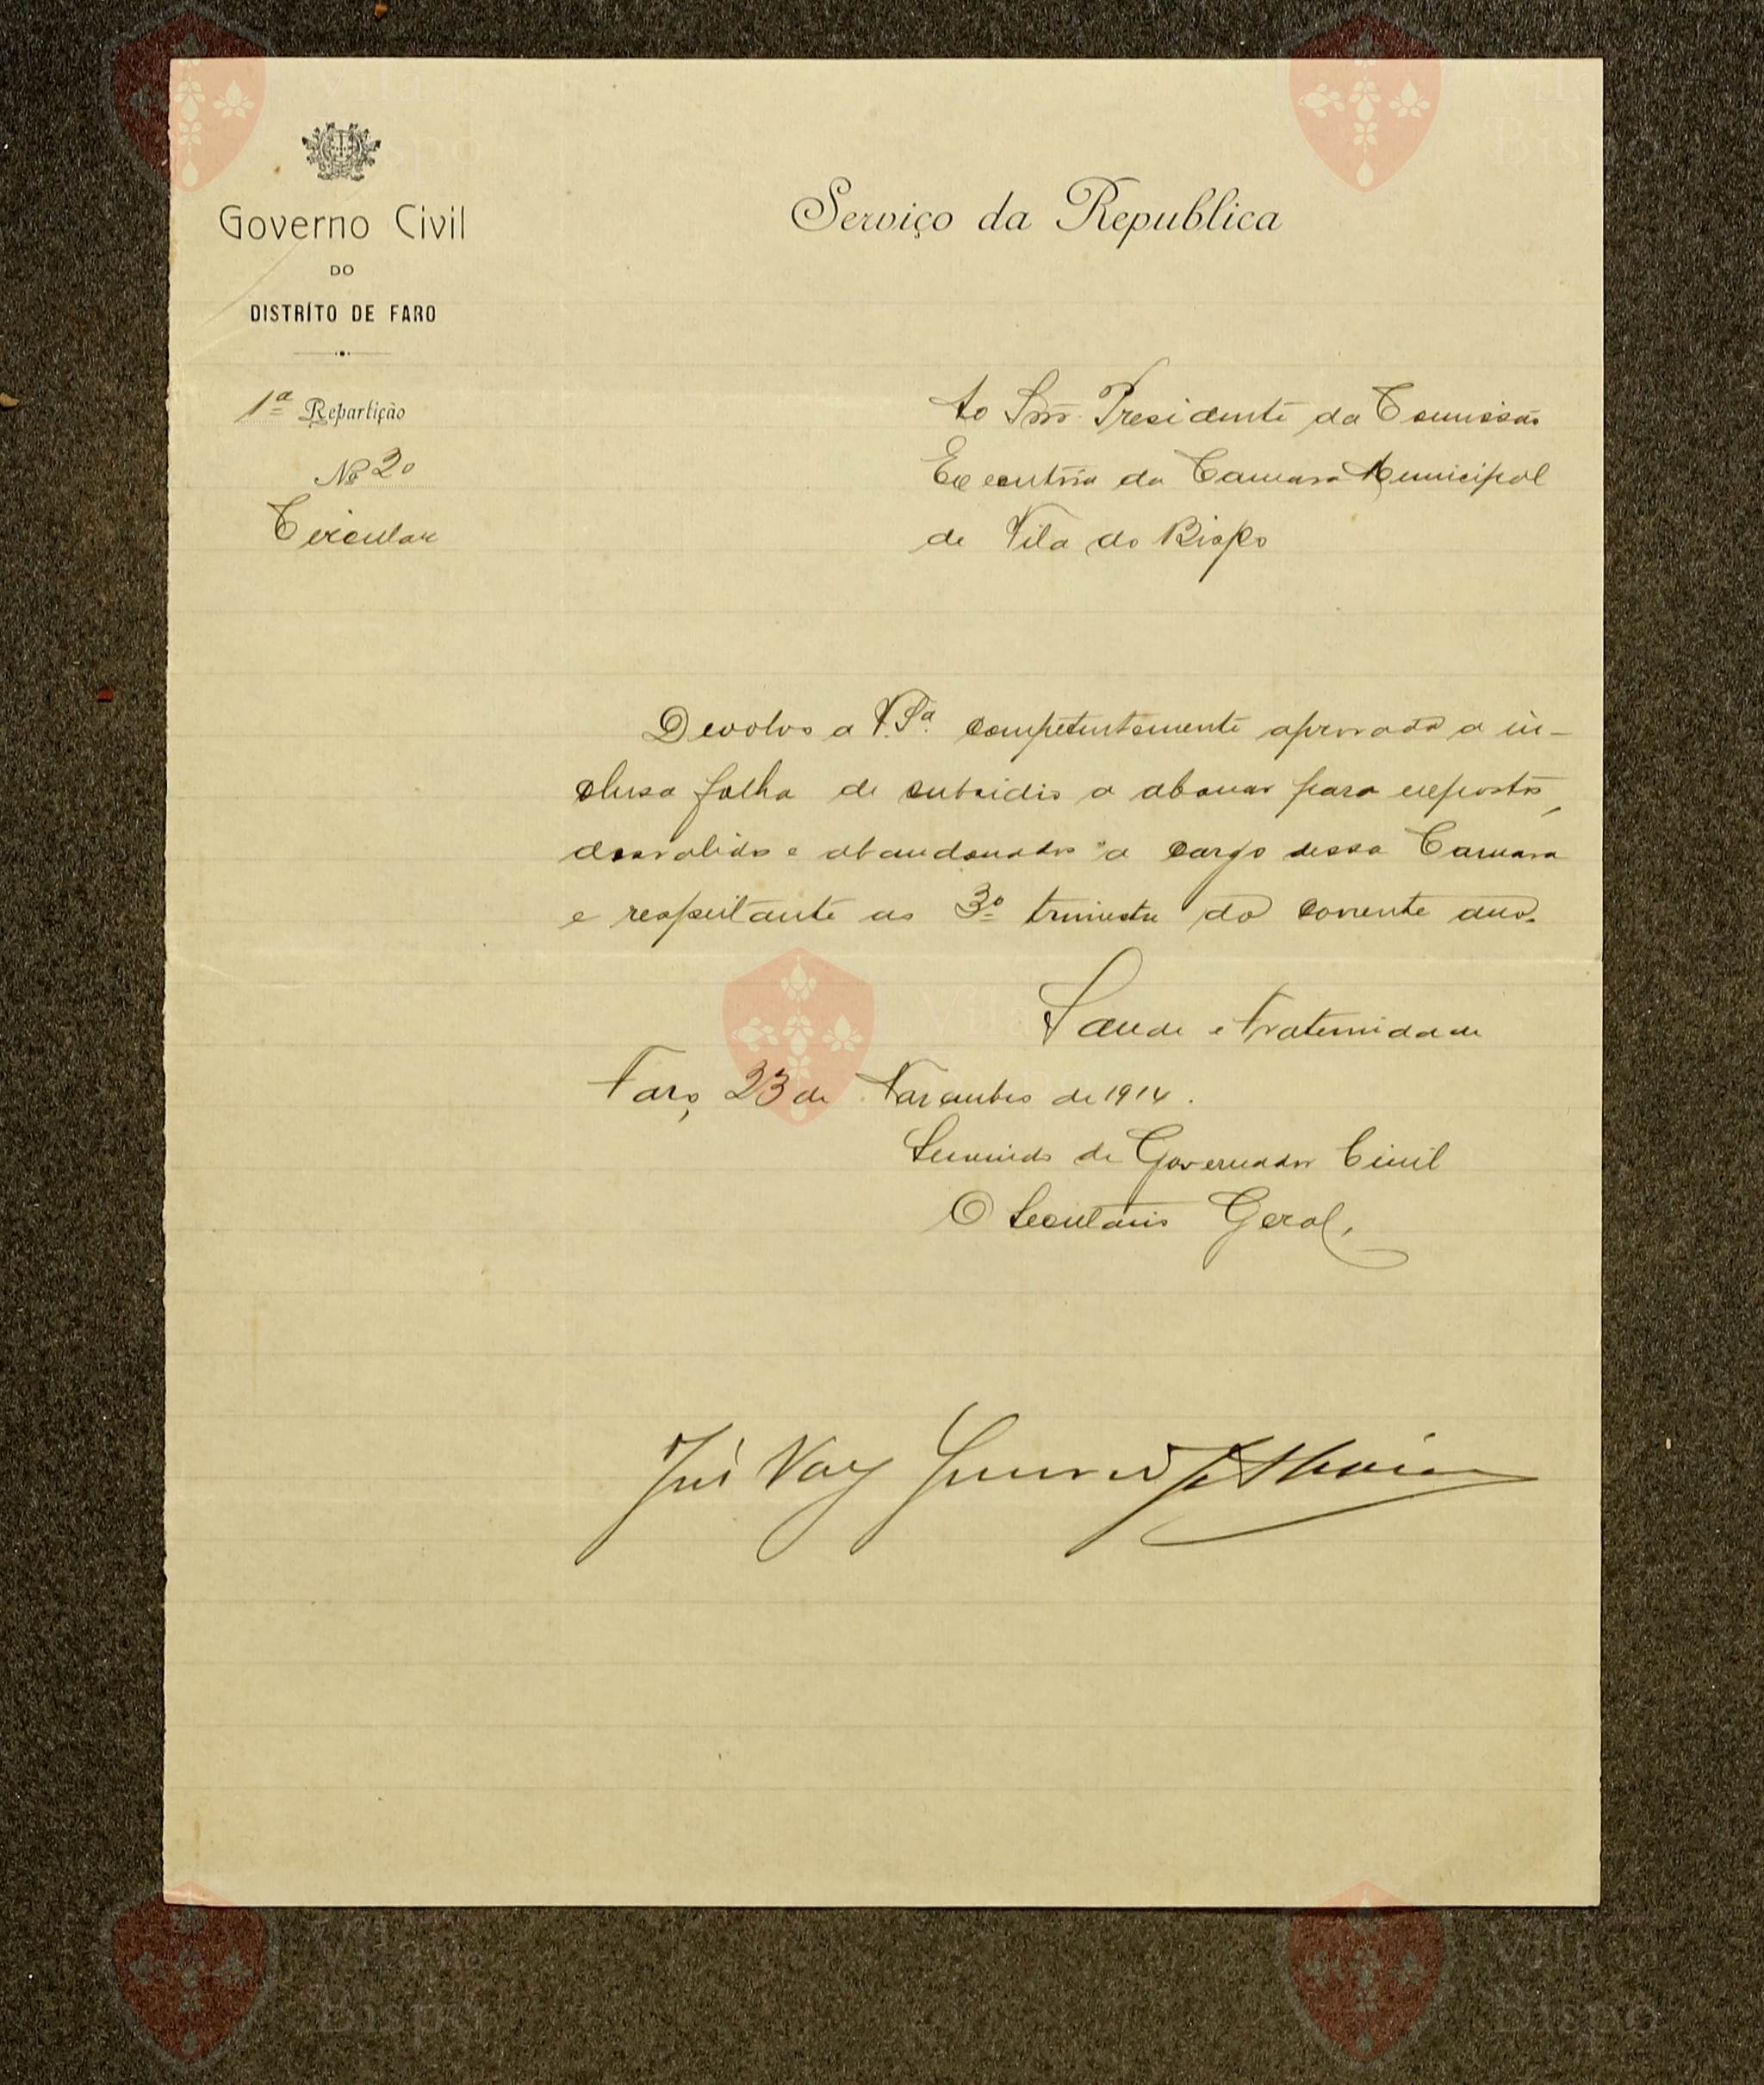 Governo Civil
DO
DISTRÍTO DE FARO
1ª Repartição
Nº 20
Circular
Serviço da Republica
Ao Snr. Presidente da Comissão
Executiva da Camara Municipal
de Vila do Bispo
Devolvo a V. Sª. competentemente aprovada a in-
clusa folha de subsidio a abonar para expostos,
desvalidos e abandonados a cargo dessa Camara
e respeitante ao 3º trimestre do corrente ano.
Saude e Fraternidade
Faro, 23 de Novembro de 1914.
Servindo de Governador Civil
O Secretario Geral,
José Vaz
Vila do
Bispo